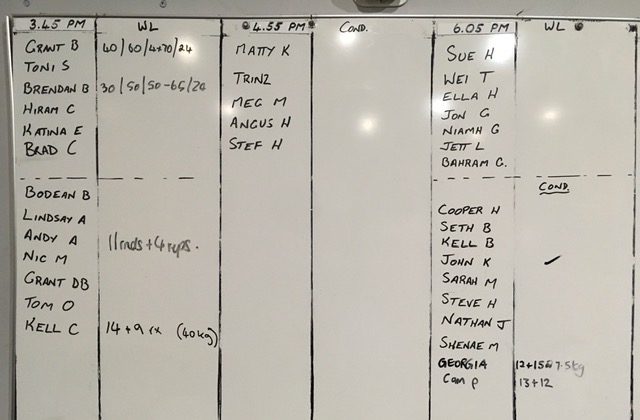 3.45 PM WL
GRANT B 40/60/4x70/24
TONI S
BRENDAN B 30/50/50-65/24
HIRAM C
KATINA E
BRAD C
BODEAN B
LINDSAY A
ANDY A 11 rnds + 4 reps.
NIC M
GRANT DB
TOM O
KELL C 14 + 9 rx (40kg)
4.55 PM COND.
MATTY K
TRINZ
MEG M
ANGUS H
STEF H
6.05 PM WL
SUE H
WEI T
ELLA H
JON G
NIAMH G
JETT L
BAHRAM G.
COND.
COOPER H
SETH B
KELL B
JOHN K ✓
SARAH M
STEVE H
NATHAN J
SHENAE M
GEORGIA 12+15@7.5kg
Cam P 13+12